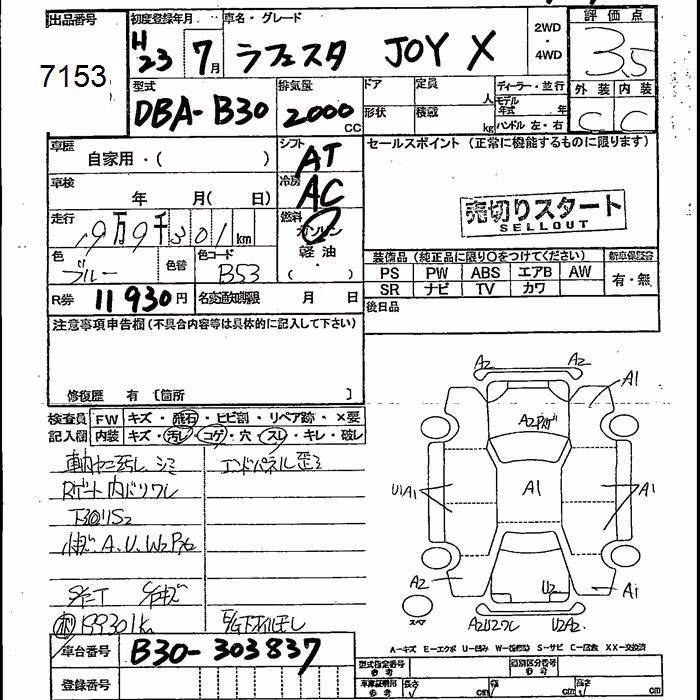 出品番号 初度登録年月 車名・グレード 2WD・4WD 評価点
7153 H23 7月 ラフェスタ JOY X 3.5
型式 排気量 ドア 定員 人 ディーラー・並行 外装 内装
DBA-B30 2000 CC 形状 積載 kg モデル年式 年 ハンドル 左・右 C C
車歴 自家用・( ) シフト AT セールスポイント(正常に機能するものに限ります)
車検 年 月( 日) 冷房 AC
売切りスタート
SELLOUT
走行 19万9千301km 燃料 ガソリン・軽油・( )
色 ブルー 色替 色コード B53
装備品(純正品に限り○をつけてください) 新車保証書
PS PW ABS エアB AW 有・無
SR ナビ TV カワ
R券 11930円 名変通知期限 月 日 後日品
注意事項申告欄(不具合内容等は具体的に記入して下さい)
修復歴 有 [箇所 ]
検査員記入欄 FW キズ・飛石・ヒビ割・リペア跡・×要
内装 キズ・汚レ・コゲ・穴・スレ・キレ・破レ
車内ヤニ汚レ、シミ エンドパネル歪ミ
Rゲート内ドリワレ
下回りS2
A2 A2
A1
A2
U1A1 A1 A1
A2 U2 A1
スペア A2U2ワレ U2A2.
199301k
A-キズ E-エクボ U-凹み W-修理跡 S-サビ C-腐食 XX-交換済
車台番号 B30-303837
登録番号
型式指定番号 参考 類別区分番号 参考
車庫証明用 参考 長さ cm 幅 cm 高さ cm